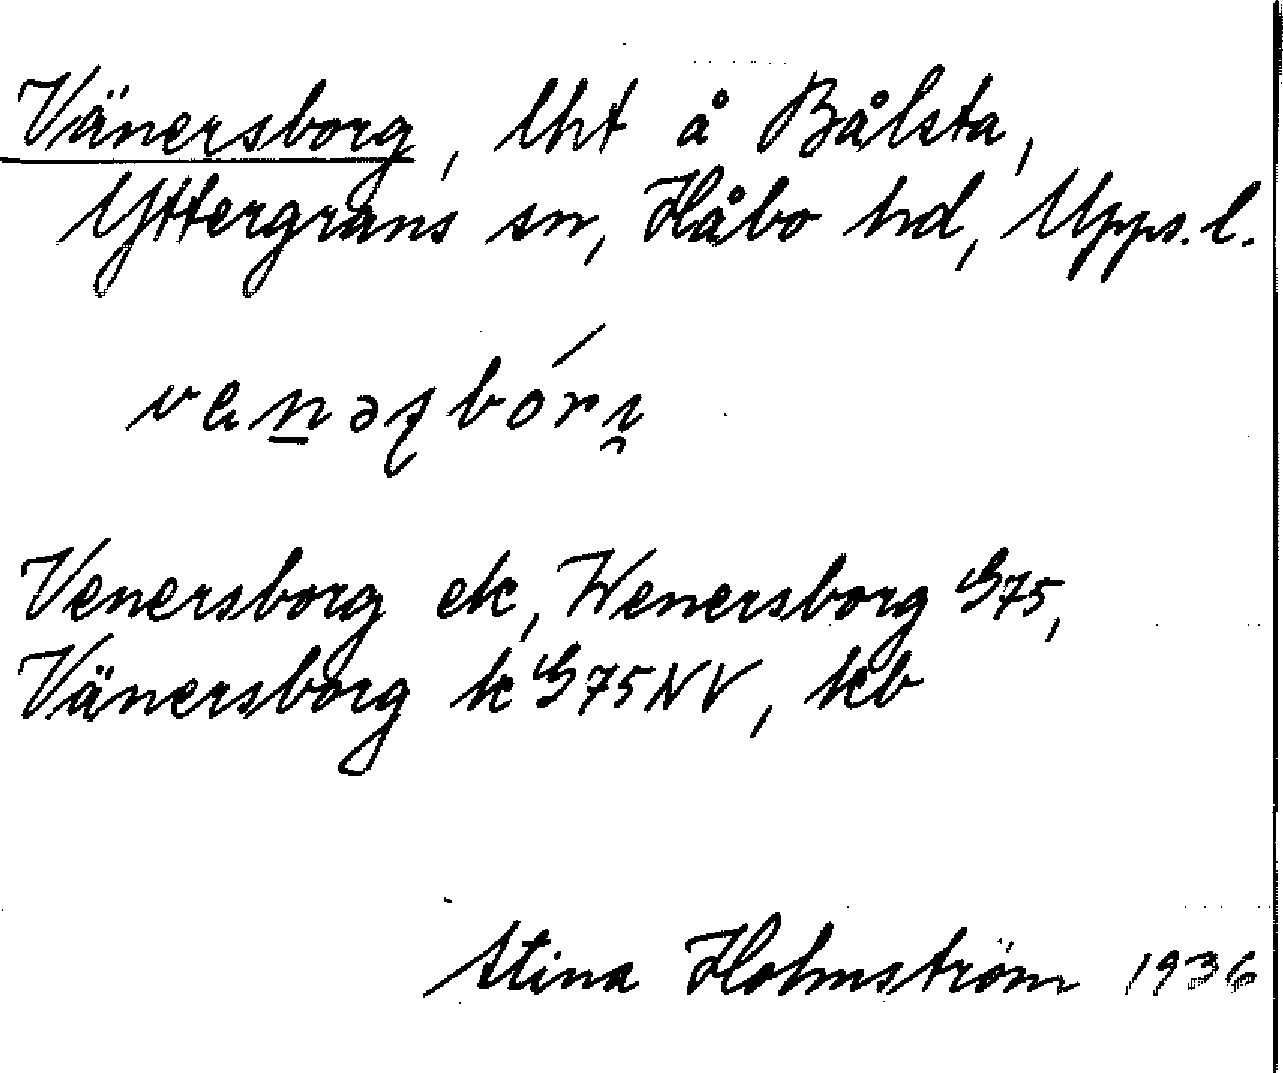 Vänersborg, lht å Bålsta,
Yttergrans sn, Håbo hd, Upps. l.
Venersborg ek, Wenersborg G75,
Vänersborg k G75NV, kb
Stina Holmström 1936